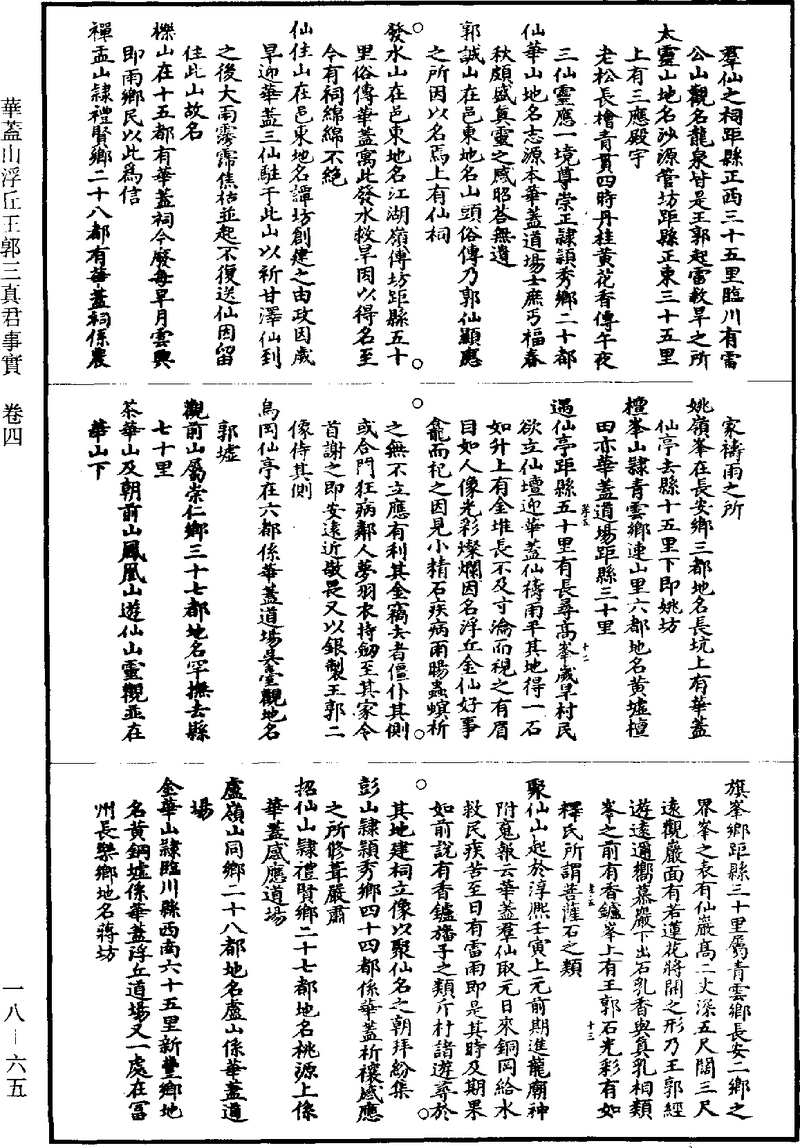 華蓋山浮丘王郭三真君事實　卷四
羣仙之祠距縣正西三十五里臨川有雷
公山觀名龍泉皆是王郭起雷救旱之所
太靈山地名沙源管坊距縣正東三十五里
上有三應殿宇
老松長檜青貫四時丹桂黃花香傳午夜
三仙靈應一境尊崇正隸穎秀鄉二十都
仙華山地名志源本華蓋道場士庶丐福春
秋頗盛真靈之感昭荅無遺
郭誠山在邑東地名山頭俗傳乃郭仙顯應
之所因以名焉上有仙祠
發水山在邑東地名江湖嶺傅坊距縣五十
里俗傳華蓋寓此發水救旱因以得名至
今有祠綿綿不絕
仙住山在邑東地名譚坊創建之由政因歲
旱迎華蓋三仙駐于此山以祈甘澤仙到
之後大雨霶霈焦枯並起不復送仙因留
住此山故名
櫟山在十五都有華蓋祠今廢每旱月雲興
即雨鄉民以此爲信
禪盂山隸禮賢鄉二十八都有華蓋祠係農
家禱雨之所
姚嶺峯在長安鄉三都地名長坑上有華蓋
仙亭去縣十五里下即姚坊
檀峯山隸青雲鄉連山里六都地名黃墟檀
田亦華蓋道場距縣三十里
遇仙亭距縣五十里有長尋髙峯歲旱村民
欲立仙壇迎華蓋仙禱雨平其地得一石
如升上有金堆長不及寸瀹而視之有眉
目如人像光彩燦爛因名浮丘金仙好事
龕而祀之因見小精石疾病雨暘蟲螟祈
之無不立應有利其金竊去者僵仆其側
或合門狂病鄰人夢羽衣持劒至其家令
首謝之即安遠近敬畏又以銀製王郭二
像侍其側
烏岡仙亭在六都係華蓋道場吳臺觀地名
郭墟
觀前山屬崇仁鄉三十七都地名罕撫去縣
七十里
茶華山及朝前山鳳凰山遊仙山靈觀並在
華山下
旗峯鄉距縣三十里屬青雲鄉長安二鄉之
界峯之表有仙巖髙二丈深五尺闊三尺
遠觀巖面有若蓮花將開之形乃王郭經
遊遠邇嚮慕巖下出石乳香與真乳相類
峯之前有香鑪峯上有王郭石光彩有如
釋氏所謂菩薩石之類
聚仙山起於淳熙壬寅上元前期進龍廟神
附寬報云華蓋羣仙取元日來銅岡給水
救民疾苦至日有雷雨即是其時及期果
如前說有香鑪旛子之類斤村諸遊尋於
其地建祠立像以聚仙名之朝拜紛集
彭山隸穎秀鄉四十四都係華蓋祈禳感應
之所修葺嚴肅
招仙山隸禮賢鄉二十七都地名桃源上係
華蓋感應道場
盧嶺山同鄉二十八都地名盧山係華蓋道
場
金華山隸臨川縣西南六十五里新豐鄉地
名黃鋼墟係華蓋浮丘道場又一處在冨
州長樂鄉地名蔣坊
一八—六五